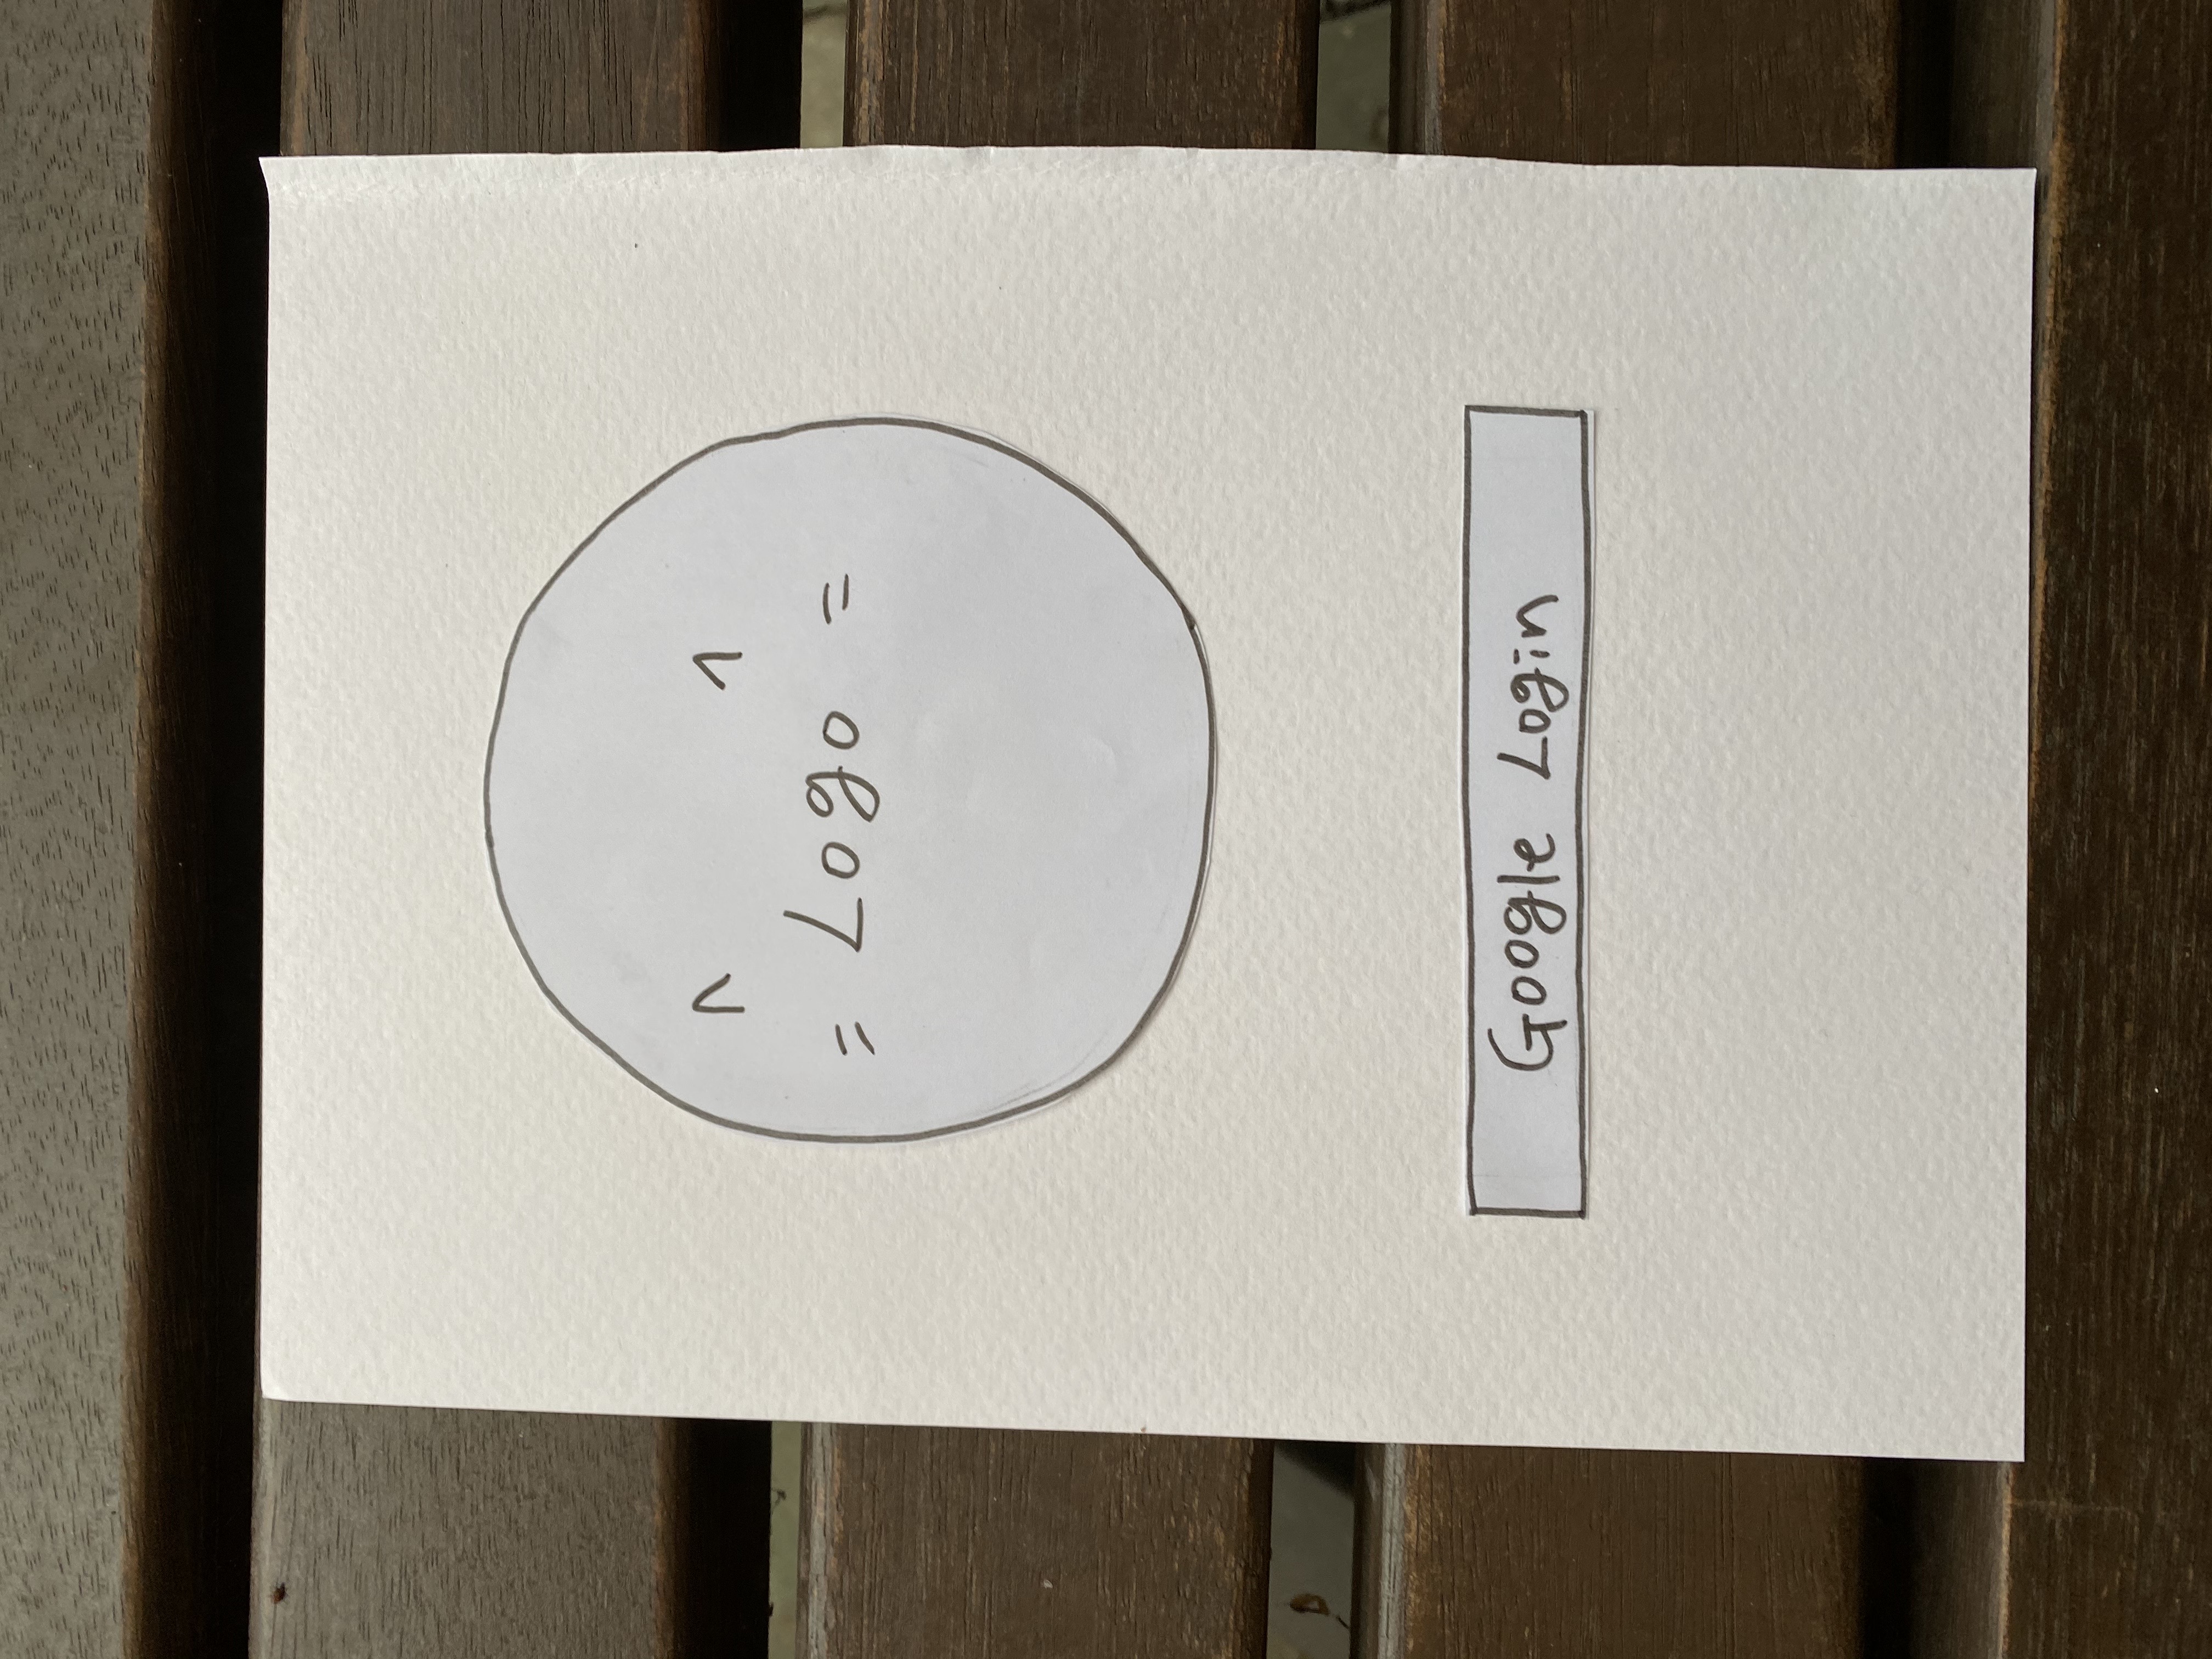 ^ ^
= Logo =
Google Login